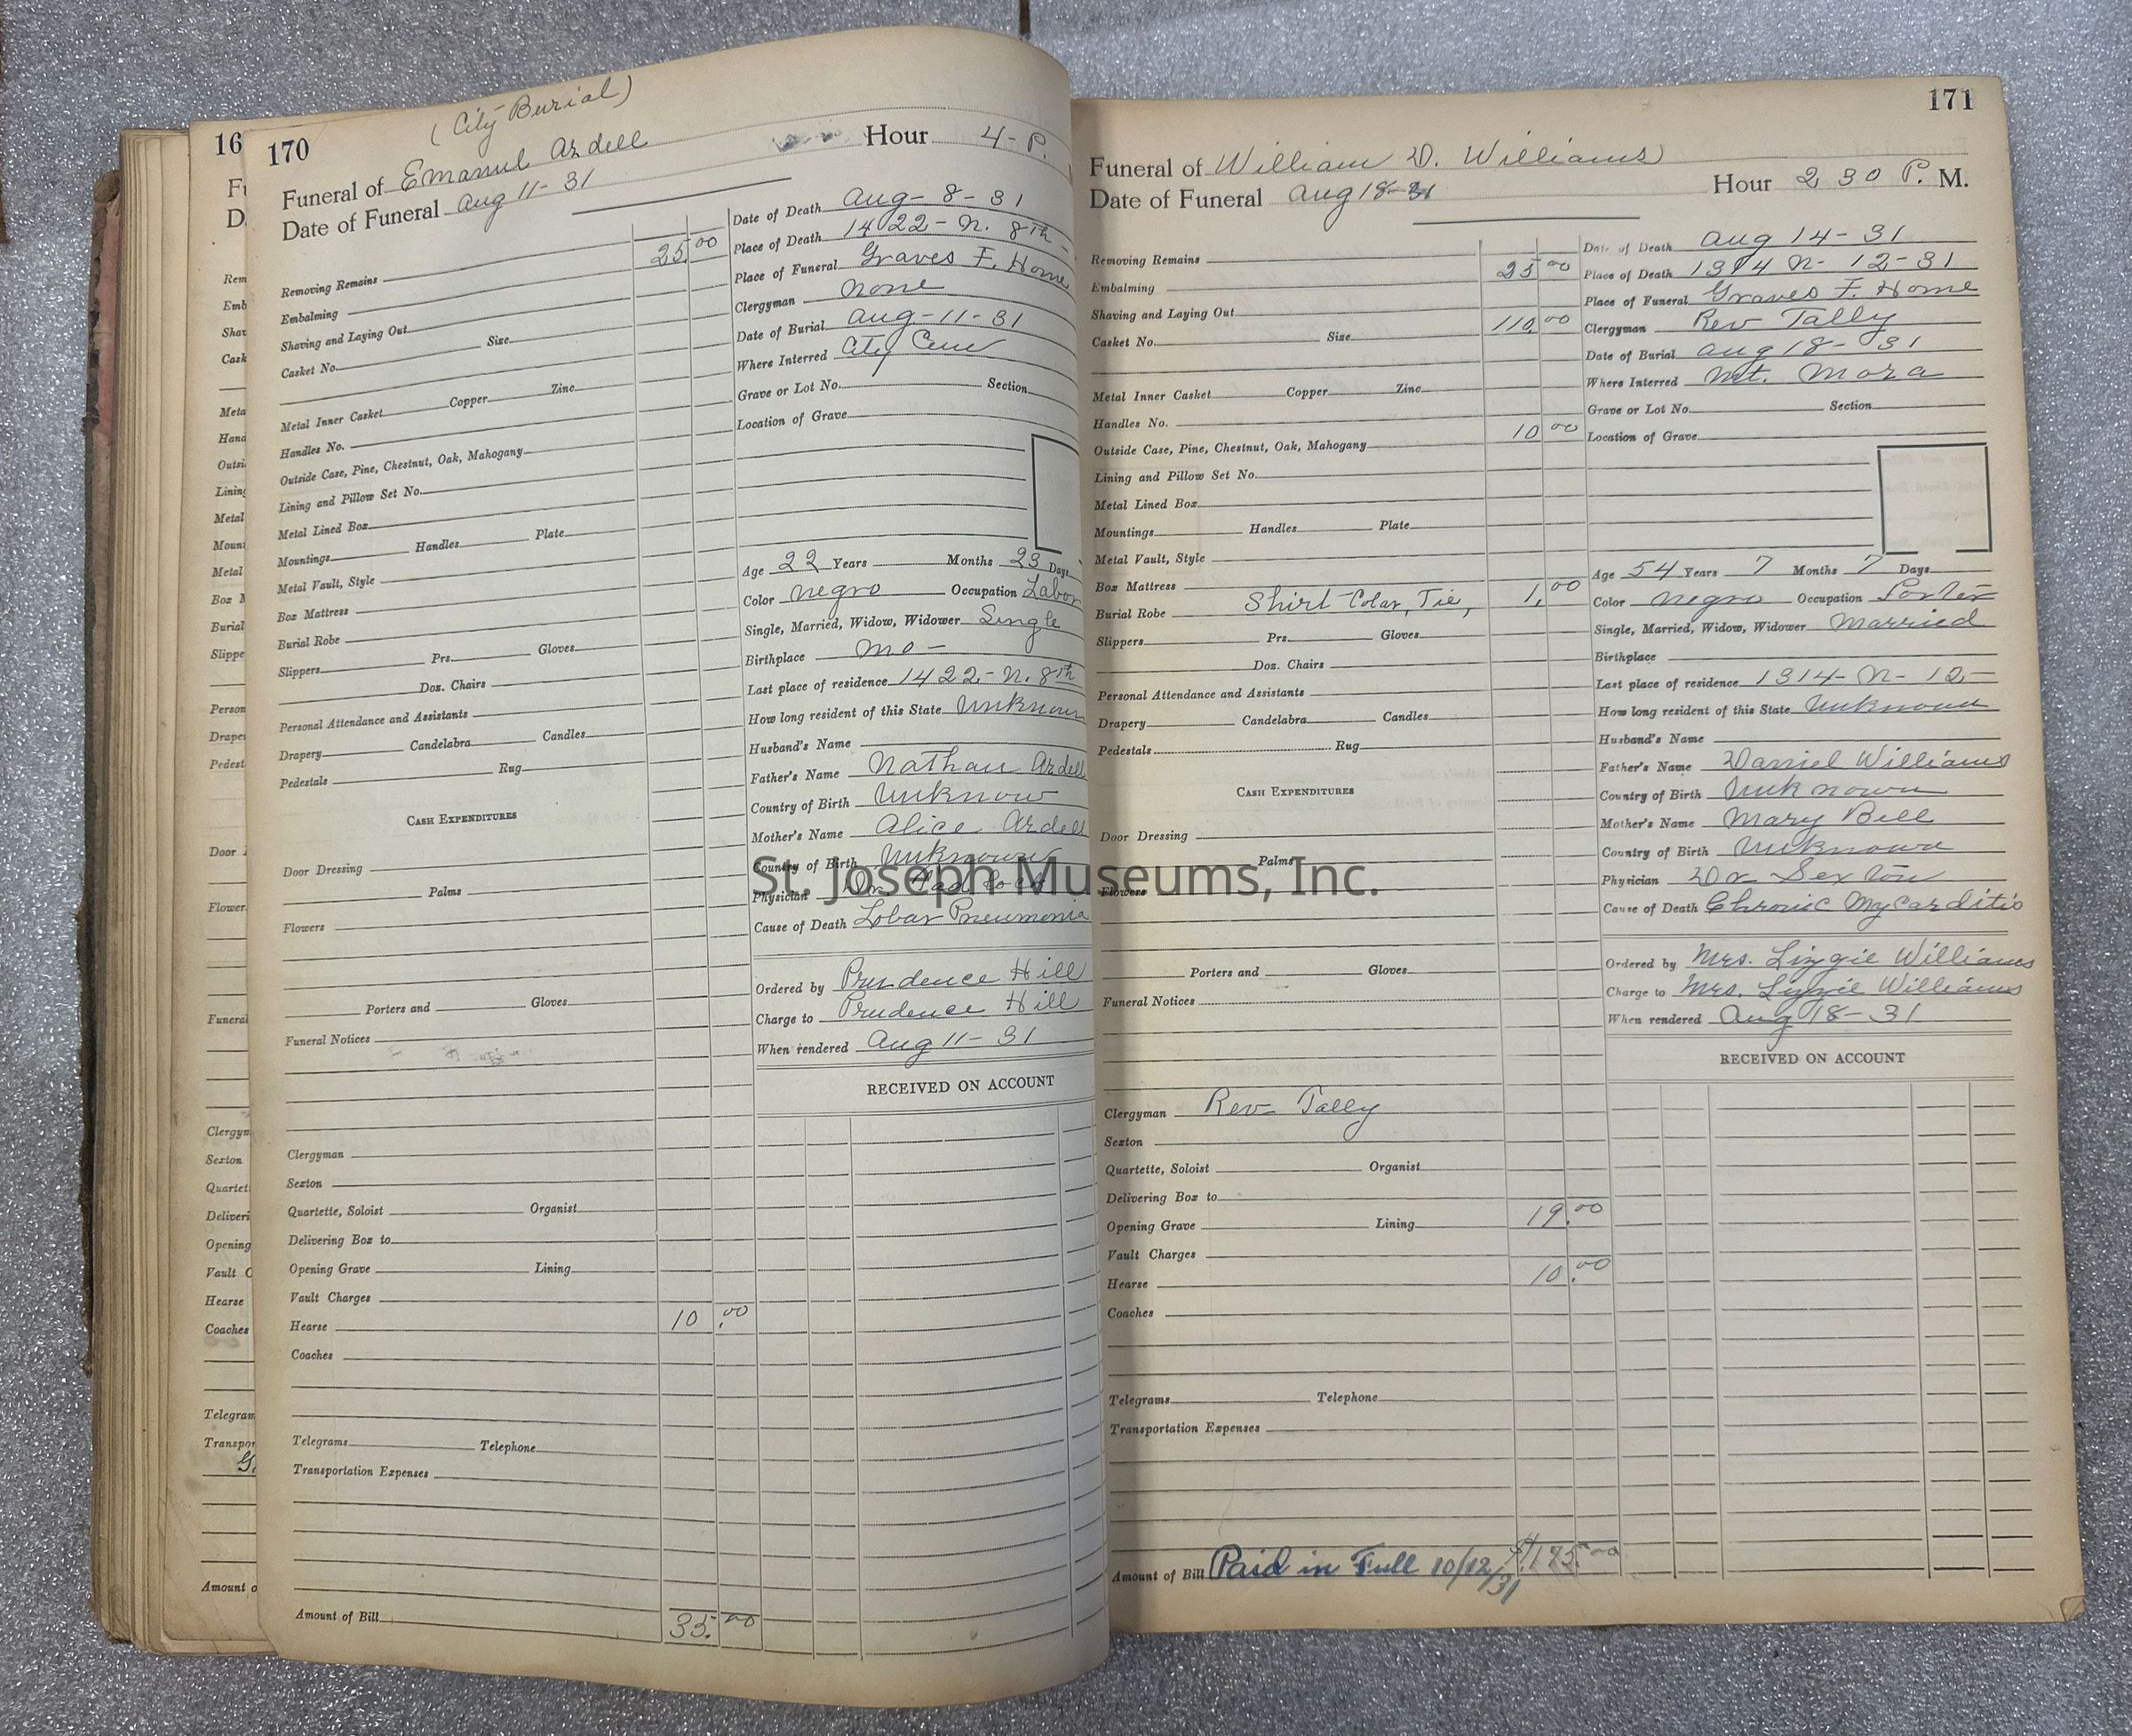 16
Fu
D
Rem
Emb
Shav
Cask
Meta
Hand
Outsi
Lining
Metal
Moun
Metal
Box M
Burial
Slippe
Person
Draper
Pedest
Door
Flower
Funeral
Clergym
Sexton
Quartet
Deliveri
Opening
Vault C
Hearse
Coaches
Telegram
Transpor
Amount o
170
(City Burial)
Funeral of Emanul Ardell
Hour 4- P.
Date of Funeral Aug 11-31
Removing Remains
Embalming 25.00
Shaving and Laying Out
Casket No. Size
Metal Inner Casket Copper Zinc
Handles No.
Outside Case, Pine, Chestnut, Oak, Mahogany
Lining and Pillow Set No.
Metal Lined Box
Mountings Handles Plate
Metal Vault, Style
Box Mattress
Burial Robe
Slippers Prs. Gloves
Doz. Chairs
Personal Attendance and Assistants
Drapery Candelabra Candles
Pedestals Rug
CASH EXPENDITURES
Door Dressing
Palms
Flowers
Porters and Gloves
Funeral Notices
Clergyman
Sexton
Quartette, Soloist Organist
Delivering Box to
Opening Grave Lining
Vault Charges
Hearse 10.00
Coaches
Telegrams Telephone
Transportation Expenses
Amount of Bill 35.00
Date of Death Aug-8-31
Place of Death 1422-N. 8th-
Place of Funeral Graves F. Home
Clergyman None
Date of Burial Aug-11-31
Where Interred City Cem
Grave or Lot No. Section
Location of Grave
Age 22 Years Months 23 Days
Color Negro Occupation Labor
Single, Married, Widow, Widower Single
Birthplace Mo-
Last place of residence 1422-N. 8th
How long resident of this State Unknown
Husband's Name
Father's Name Nathan Ardell
Country of Birth Unknow
Mother's Name Alice Ardell
Country of Birth Unknown
Physician Dr.
Cause of Death Lobar Pneumonia
Ordered by Prudence Hill
Charge to Prudence Hill
When rendered Aug 11-31
RECEIVED ON ACCOUNT
171
Funeral of William D. Williams
Date of Funeral Aug 18-31
Hour 2 30 P. M.
Removing Remains
Embalming 25.00
Shaving and Laying Out
Casket No. Size 110.00
Metal Inner Casket Copper Zinc
Handles No.
Outside Case, Pine, Chestnut, Oak, Mahogany 10.00
Lining and Pillow Set No.
Metal Lined Box
Mountings Handles Plate
Metal Vault, Style
Box Mattress
Burial Robe Shirt Colar, Tie, 1.00
Slippers Prs. Gloves
Doz. Chairs
Personal Attendance and Assistants
Drapery Candelabra Candles
Pedestals Rug
CASH EXPENDITURES
Door Dressing
Palms
Flowers
Porters and Gloves
Funeral Notices
Clergyman Rev Tally
Sexton
Quartette, Soloist Organist
Delivering Box to
Opening Grave Lining 19.00
Vault Charges
Hearse 10.00
Coaches
Telegrams Telephone
Transportation Expenses
Amount of Bill Paid in Full 10/12/31 $175.00
Date of Death Aug 14-31
Place of Death 1314 N-12-31
Place of Funeral Graves F. Home
Clergyman Rev Tally
Date of Burial Aug 18-31
Where Interred Mt. Mora
Grave or Lot No. Section
Location of Grave
Age 54 Years 7 Months 7 Days
Color Negro Occupation Porter
Single, Married, Widow, Widower Married
Birthplace
Last place of residence 1314-N-12-
How long resident of this State Unknown
Husband's Name
Father's Name Daniel Williams
Country of Birth Unknown
Mother's Name Mary Bell
Country of Birth Unknown
Physician Dr Sexton
Cause of Death Chronic Mycarditis
Ordered by Mrs. Lizzie Williams
Charge to Mrs. Lizzie Williams
When rendered Aug 18-31
RECEIVED ON ACCOUNT
St. Joseph Museums, Inc.